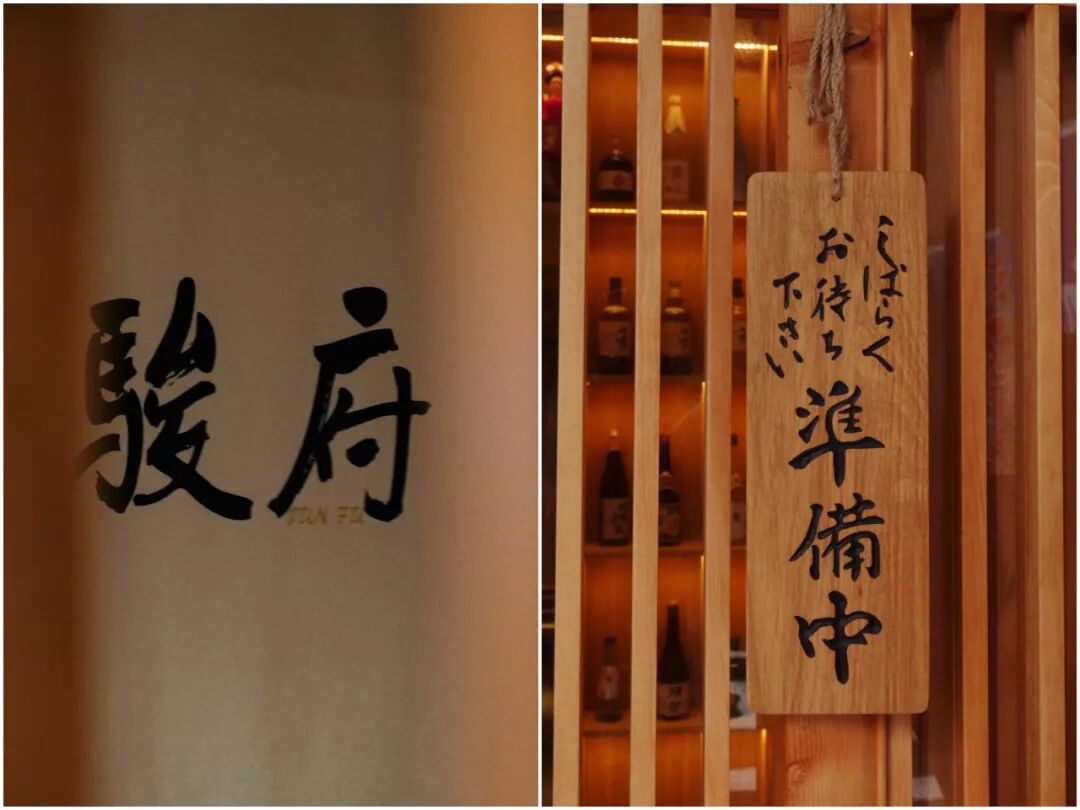 駿府
JUN FU
しばらく
お待ち
下さい
準備中